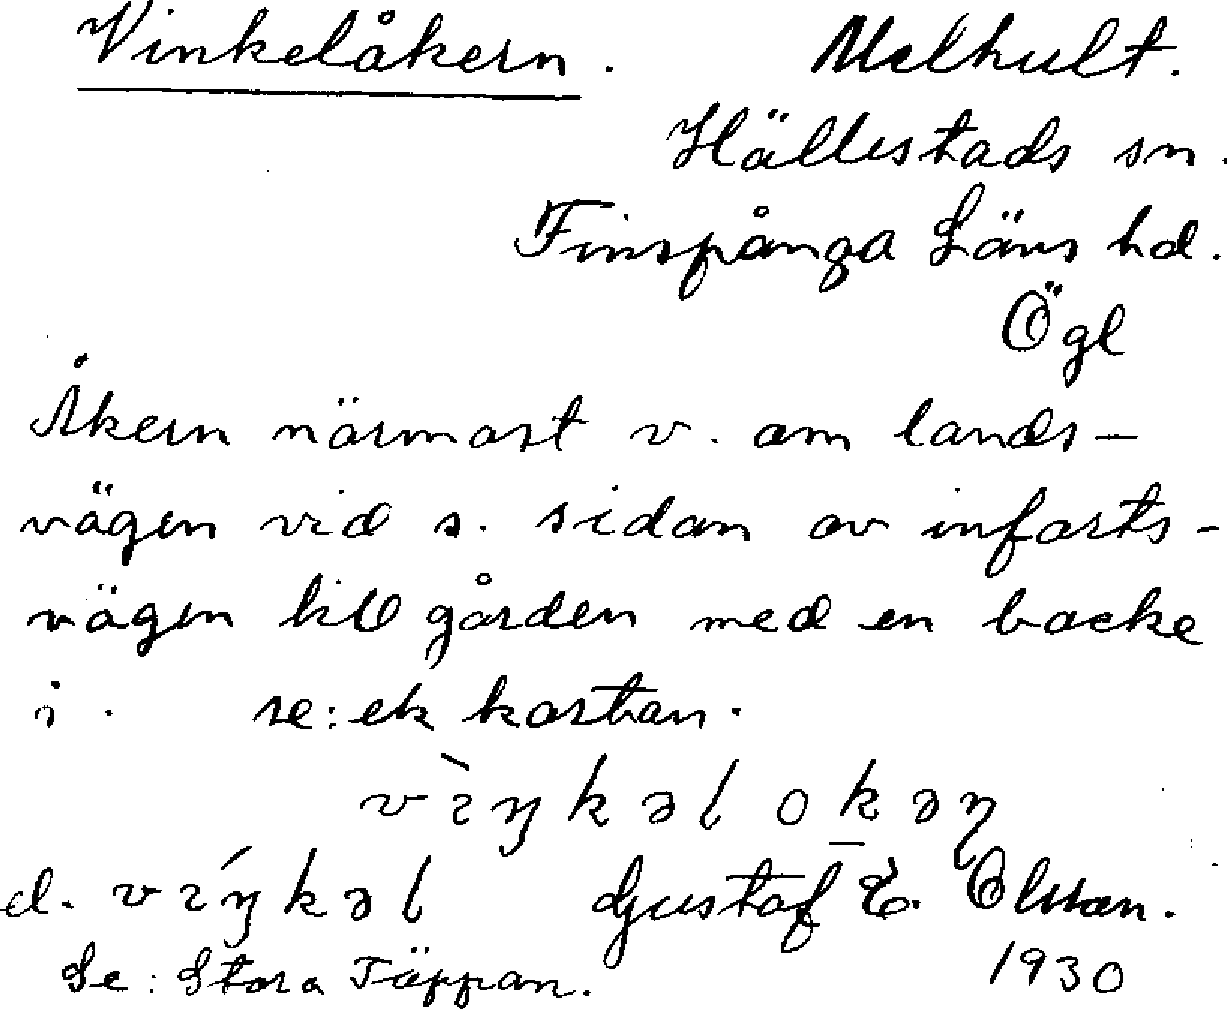 Vinkelåkern. Melhult.
Hällestads sn.
Finspånga Läns hd.
Ögl
Åkern närmast v. om lands-
vägen vid s. sidan av infarts-
vägen till gården med en backe
i. se: ek kartan.
d. Gustaf E. Olsson.
Se: Stora Täppan. 1930